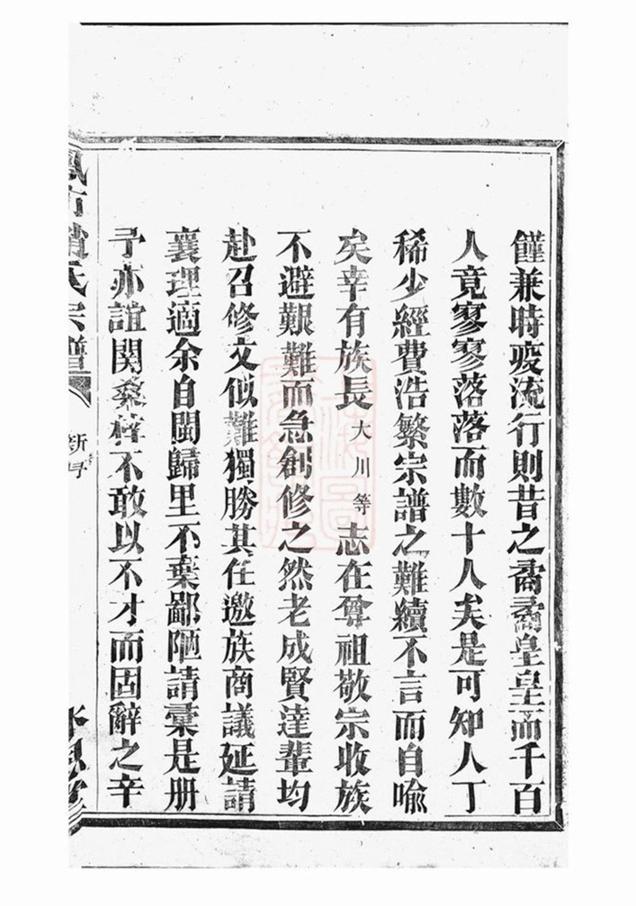 饉兼時疫流行則昔之矞矞皇皇而千百
人竟寥寥落落而數十人矣是可知人丁
稀少經費浩繁宗譜之難續不言而自喻
矣幸有族長大川等志在尊祖敬宗收族
不避艱難而急創修之然老成賢達輩均
赴召修文似難獨勝其任邀族商議延請
襄理適余自閩歸里不棄鄙陋請彙是册
予亦誼関桑梓不敢以不才而固辭之辛
趙氏宗譜
新序